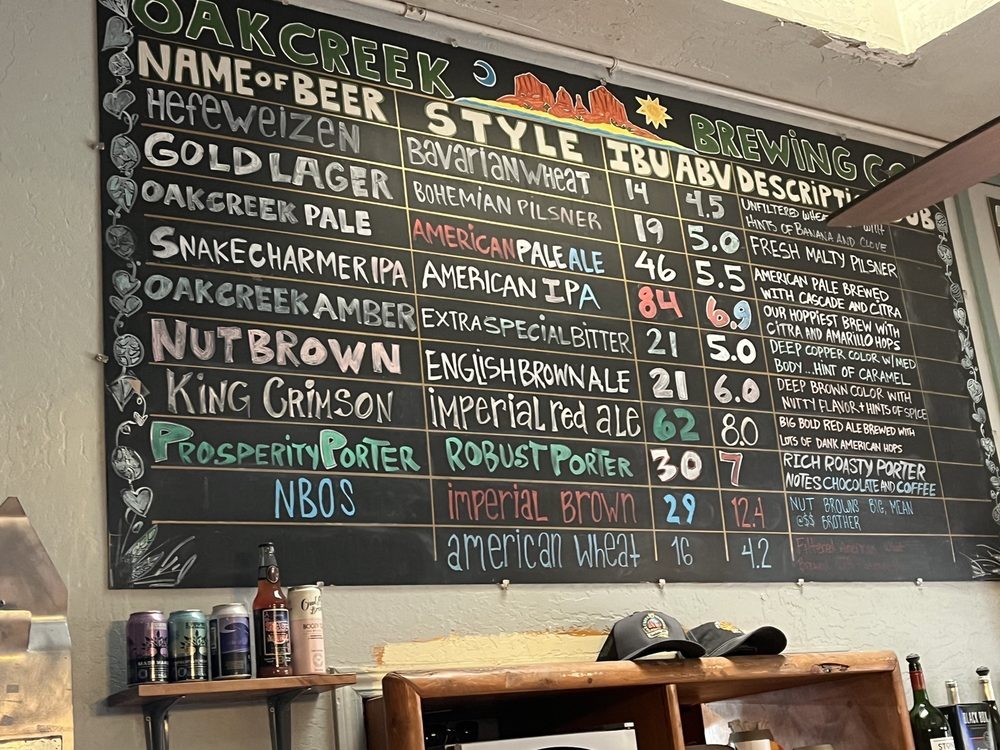 OAKCREEK BREWING CO
NAME OF BEER STYLE IBU ABV
HEFEWEIZEN BAVARIAN WHEAT 14 4.5 UNFILTERED
HINTS OF BANANA AND CLOVE
GOLD LAGER BOHEMIAN PILSNER 19 5.0 FRESH MALTY PILSNER
OAKCREEK PALE AMERICAN PALE ALE 46 5.5 AMERICAN PALE BREWED
WITH CASCADE AND CITRA
SNAKECHARMER IPA AMERICAN IPA 84 6.9 OUR HOPPIEST BREW WITH
CITRA AND AMARILLO HOPS
OAKCREEK AMBER EXTRA SPECIAL BITTER 21 5.0 DEEP COPPER COLOR W/MED
BODY...HINT OF CARAMEL
NUT BROWN ENGLISH BROWN ALE 21 6.0 DEEP BROWN COLOR WITH
NUTTY FLAVOR + HINTS OF SPICE
KING CRIMSON IMPERIAL RED ALE 62 8.0 BIG BOLD RED ALE BREWED WITH
LOTS OF DANK AMERICAN HOPS
PROSPERITY PORTER ROBUST PORTER 30 7 RICH ROASTY PORTER
NOTES CHOCOLATE AND COFFEE
NBOS IMPERIAL BROWN 29 12.4 NUT BROWNS BIG, MEAN
@$$ BROTHER
AMERICAN WHEAT 16 4.2
BLACK BOX